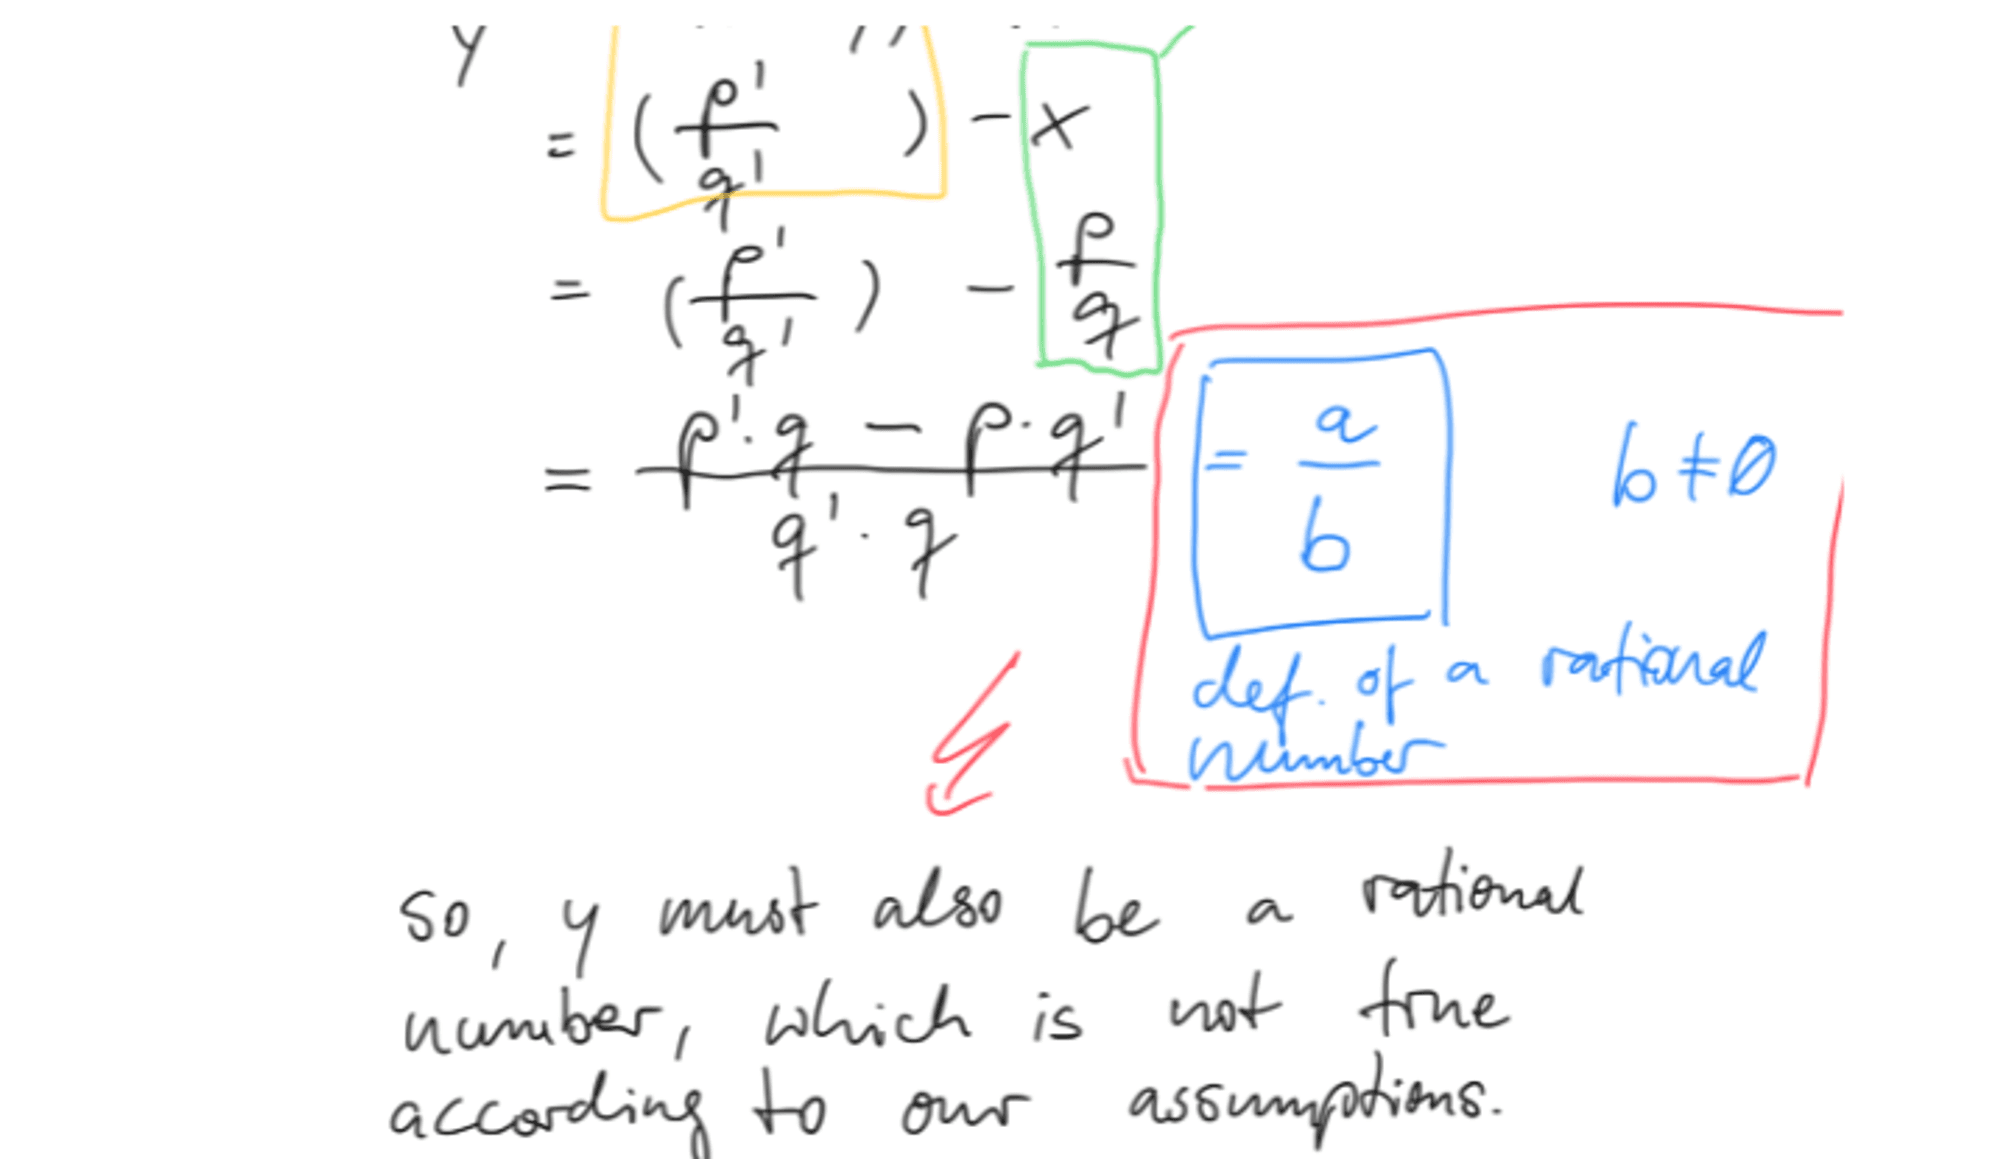 y
= (p'/q') - x
= (p'/q') - p/q
= (p'·q - p·q')/(q'·q) = a/b b ≠ 0
def. of a rational
number
so, y must also be a rational
number, which is not true
according to our assumptions.